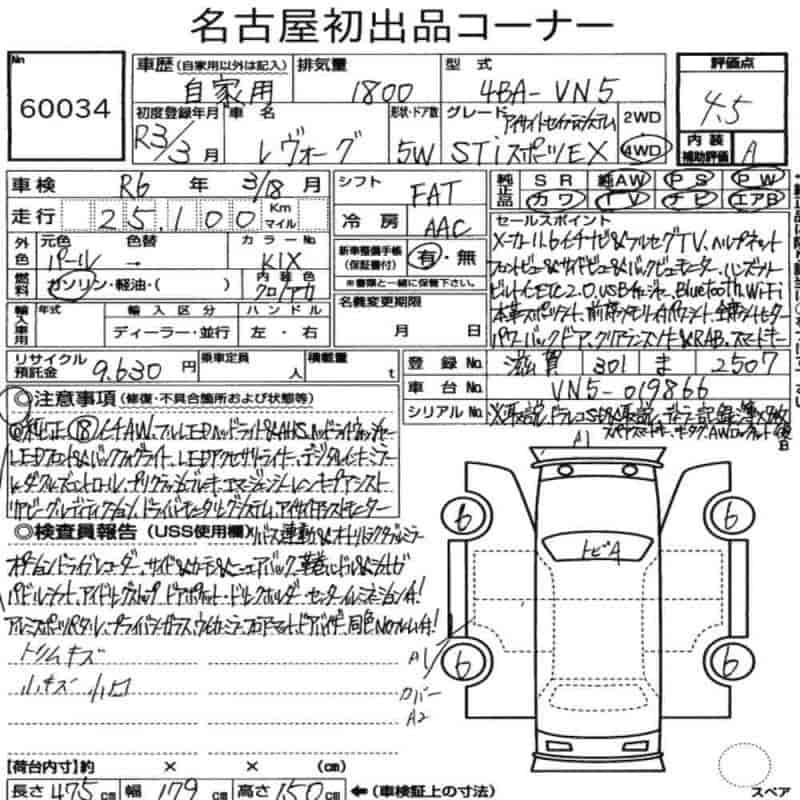 名古屋初出品コーナー
No 60034
車歴(自家用以外は記入) 自家用
排気量 1800
型式 4BA-VN5
評価点 4.5
初度登録年月 R3/3月
車名 レヴォーグ
形状・ドア数 5W
グレード アイサイトセイフティシステム STiスポーツEX
2WD
4WD
内装補助評価 A
車検 R6年 3/18月
シフト FAT
純正品 SR 純AW PS PW
カワ TV ナビ エアB
走行 25,100 Km マイル
冷房 AAC
セールスポイント
メーカー11.6インチナビ&フルセグTV、ヘルプネット
フロントビュー&サイドビュー&バックビューモニター、ハンズフリー
ビルトインETC2.0、USBチャージャー、Bluetooth、Wi-Fi
本革スポーツシート、前席メモリ付パワーシート、全席シートヒーター
パワーバックドア、クリアランスソナー&RAB、スマートキー
外色 元色 パール 色替 → カラーNo. K1X
新車整備手帳(保証書付) 有・無
※書類と一緒に保管下さい。
燃料 ガソリン・軽油・( )
内装色 クロ/アカ
名義変更期限 月 日
輸入車用 年式 輸入区分 ディーラー・並行 ハンドル 左・右
リサイクル預託金 9,630円
乗車定員 人
積載量 t
登録No. 滋賀 301 ま 2507
車台No. VN5-019866
シリアルNo.
◎注意事項(修復・不具合箇所および状態等)
純正18インチAW、フルLEDヘッドライト&AHS、ヘッドライトウォッシャー
LEDフロント&バックフォグライト、LEDアクセサリーライナー、デジタルインナーミラー
レーダークルーズコントロール、プリクラッシュブレーキ、エマージェンシーレーンキープアシスト
リヤビークルディテクション、ドライバーモニタリングシステム、アイサイトアシストモニター
◎検査員報告(USS使用欄)
リバース連動&オートリトラクタブルミラー
パドルシフト、アイドリングストップ、ドアポケット・ドリンクホルダー・センターイルミネーション付!
アルミスポーツペダル、プライバシーガラス、ウィンカーミラー、フロアマット、ドアバイザー、同色Noフレーム付!
トリムキズ
小キズ 小凹
A1
トビA
6
6
6
6
A1
カバー
A2
【荷台内寸】約 × × (cm)
長さ 475cm 幅 179cm 高さ 150cm ←(車検証上の寸法)
スペア